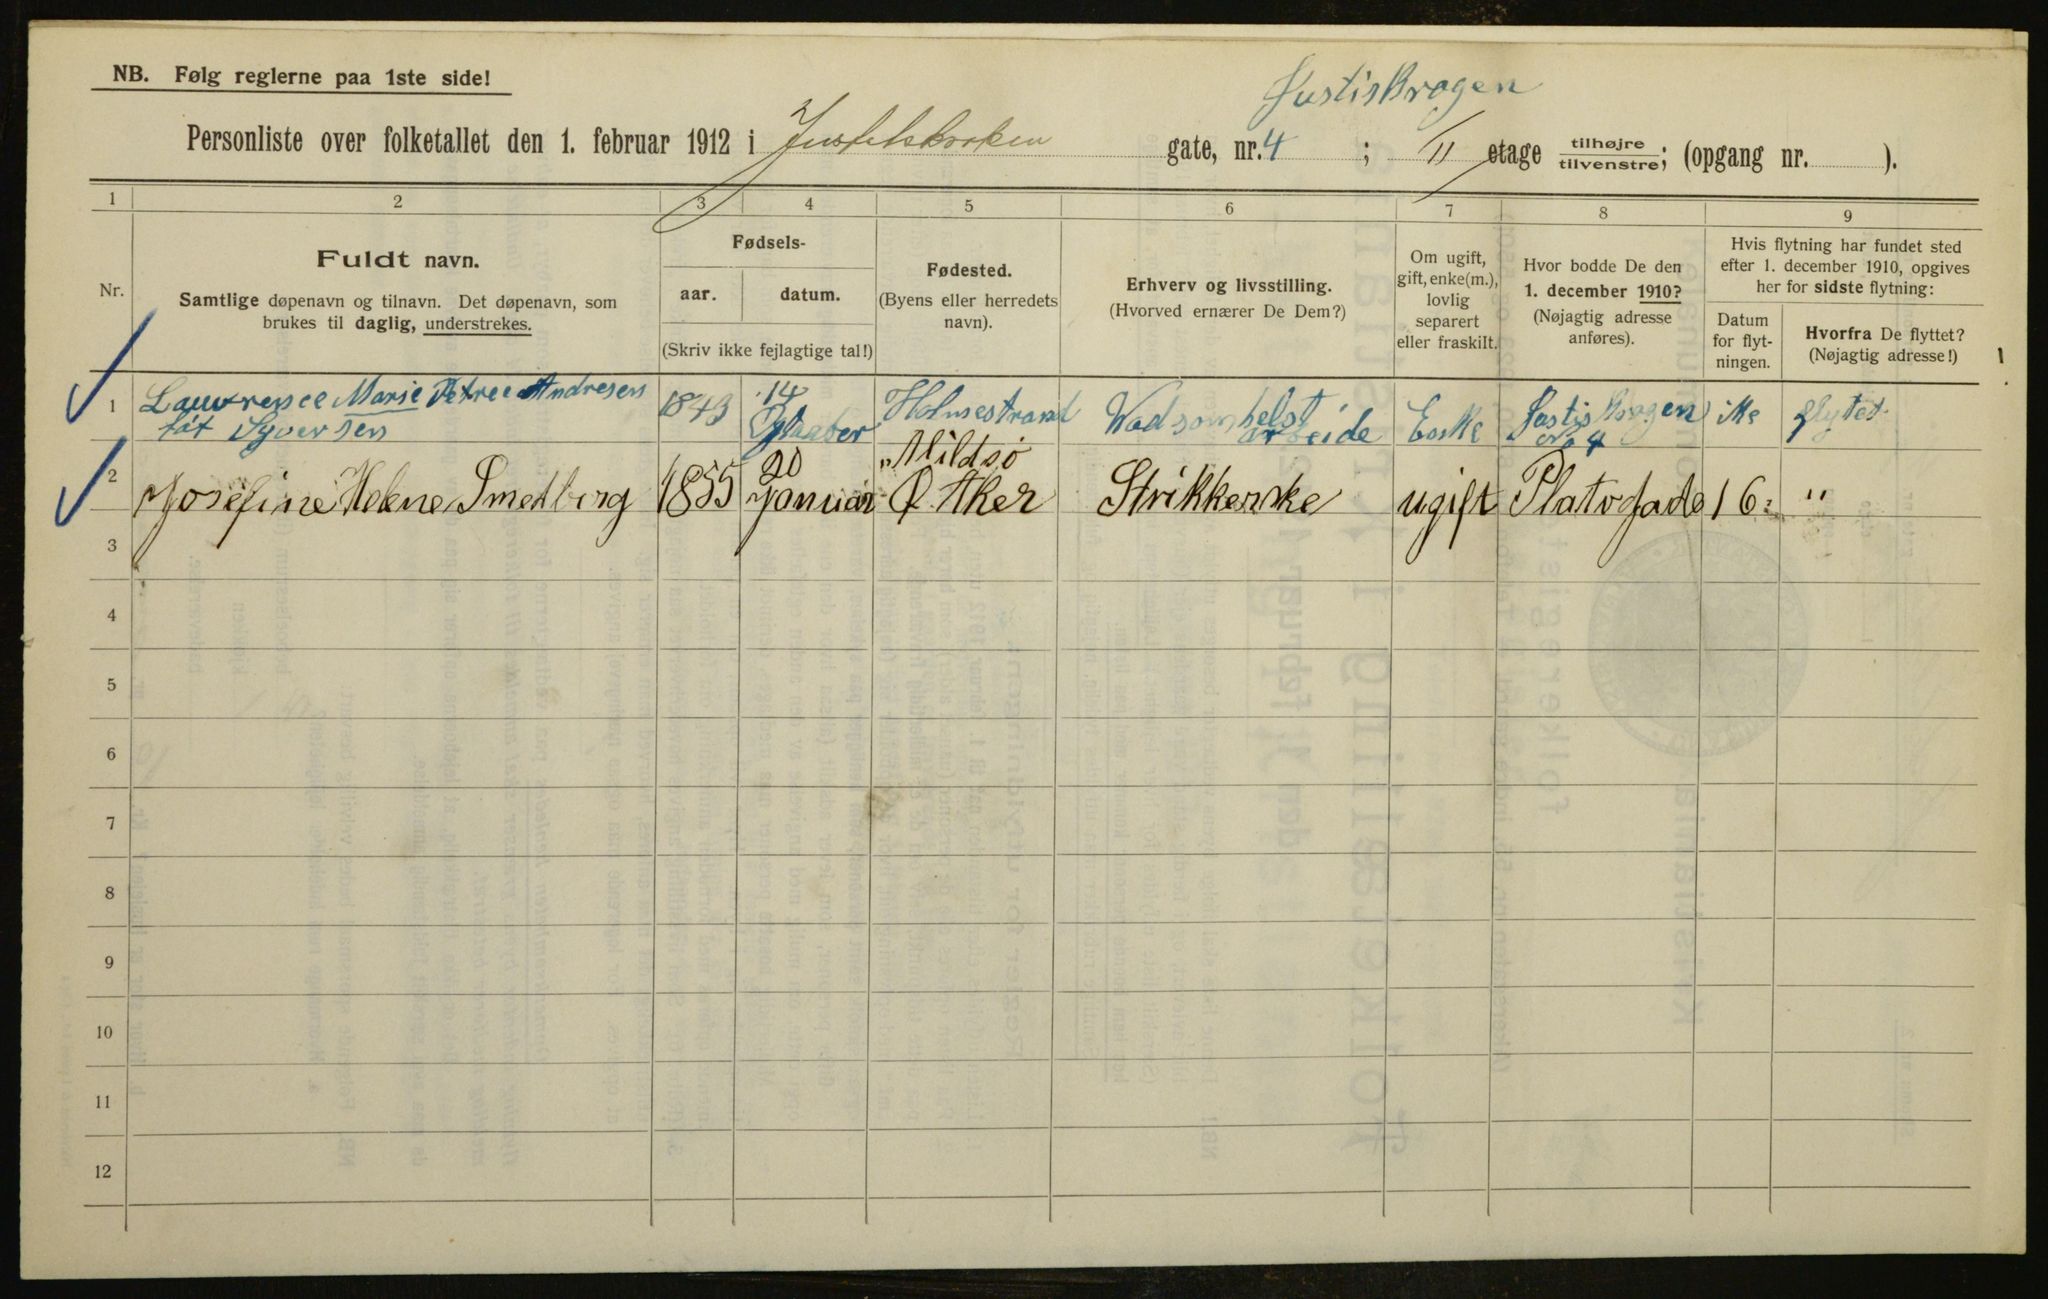 NB. Følg reglerne paa 1ste side!
Justiskrogen
Personliste over folketallet den 1. februar 1912 i Justitskroken gate, nr. 4 ; II etage tilhøjre/tilvenstre; (opgang nr. ).
1 2 3 4 5 6 7 8 9
Nr.
Fuldt navn.
Samtlige døpenavn og tilnavn. Det døpenavn, som
brukes til daglig, understrekes.
Fødsels-
aar. datum.
(Skriv ikke fejlagtige tal!)
Fødested.
(Byens eller herredets
navn).
Erhverv og livsstilling.
(Hvorved ernærer De Dem?)
Om ugift,
gift, enke(m.),
lovlig
separert
eller fraskilt.
Hvor bodde De den
1. december 1910?
(Nøjagtig adresse
anføres).
Hvis flytning har fundet sted
efter 1. december 1910, opgives
her for sidste flytning:
Datum
for flyt-
ningen.
Hvorfra De flyttet?
(Nøjagtig adresse!)
1 Laurensee Marie Petree Andresen 1843 14 Holmestrand Vadsomhelst arbeide Enke Justiskrogen No 4 ike flytet
føt Syversen
2 Josefine Helene Smedberg 1855 20 Januar Ø Aker Strikkerske ugift Platosgade 16 "
3
4
5
6
7
8
9
10
11
12